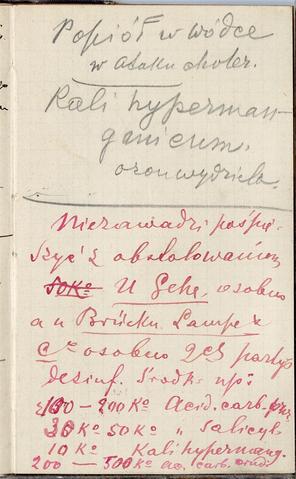 Popiół w wódce
w ataku choler.
Kali hyperman-
ganicum.
ozon wydziela.
Niezawadzi pośpie-
szyć z obstalowaniem
50 Ko U Gehe, osobno
a u Brückn. Lampe &
Co osobno 2gą partyę
dezinf. środk. np:
100 – 200 Ko Acid. carb.
30 Ko 50 Ko " salicyl.
10 Ko Kali hypermang.
200 – 500 Ko ac. carb. crud.